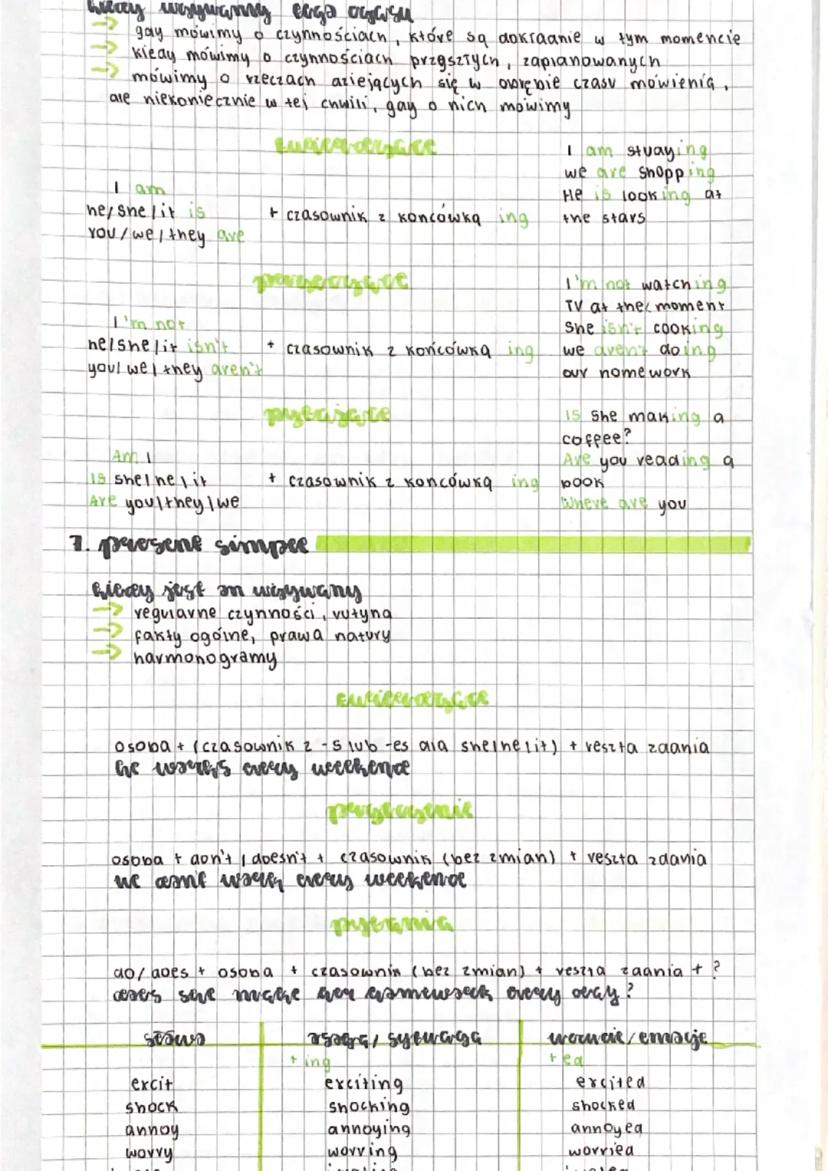 kiedy używamy tego czasu
→ gdy mówimy o czynnościach, które są dokładnie w tym momencie
→ kiedy mówimy o czynnościach przyszłych, zaplanowanych
→ mówimy o rzeczach dziejących się w obrębie czasu mówienia,
ale niekoniecznie w tej chwili, gdy o nich mówimy
twierdzące
I am
he/she/it is
You/we/they are
+ czasownik z końcówką ing
I am studying
we are shopping
He is looking at
the stars
przeczące
I'm not
he/she/it isn't
you/we/they aren't
+ czasownik z końcówką ing
I'm not watching
TV at the moment
She isn't cooking
we aren't doing
our homework
pytające
Am I
Is she/he/it
Are you/they/we
+ czasownik z końcówką ing
Is she making a
coffee?
Are you reading a
book
Where are you
7. present simple
kiedy jest on używany
→ regularne czynności, rutyna
→ fakty ogólne, prawa natury
→ harmonogramy
twierdzące
osoba + (czasownik z -s lub -es dla she/he/it) + reszta zdania
he works every weekend
przeczenie
osoba + don't / doesn't + czasownik (bez zmian) + reszta zdania
we don't work every weekend
pytania
do/does + osoba + czasownik (bez zmian) + reszta zdania + ?
does she make her homework every day?
słowo rzecz/sytuacja uczucie/emocje
+ ing + ed
excit exciting excited
shock shocking shocked
annoy annoying annoyed
worry worrying worried